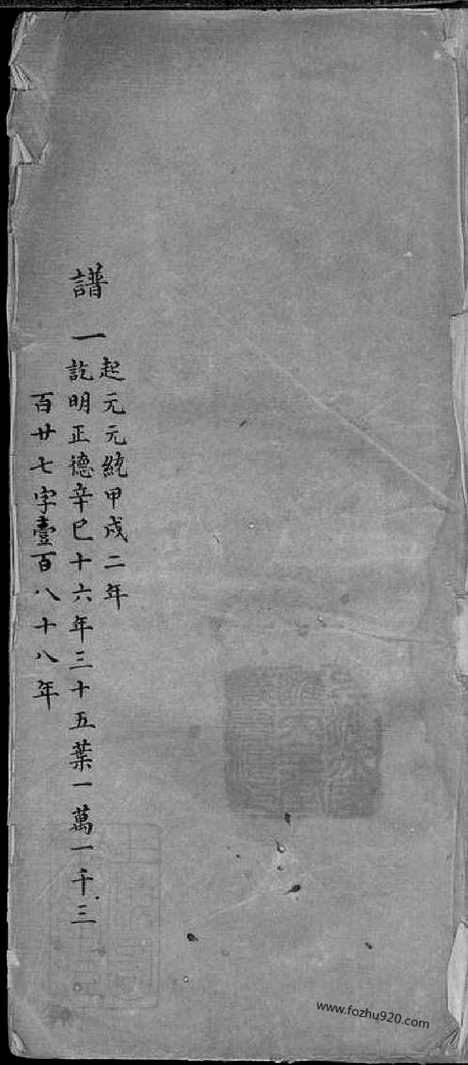 譜一
起元元統甲戌二年
訖明正德辛巳十六年三十五葉一萬一千三
百廿七字壹百八十八年
www.fozhu920.com